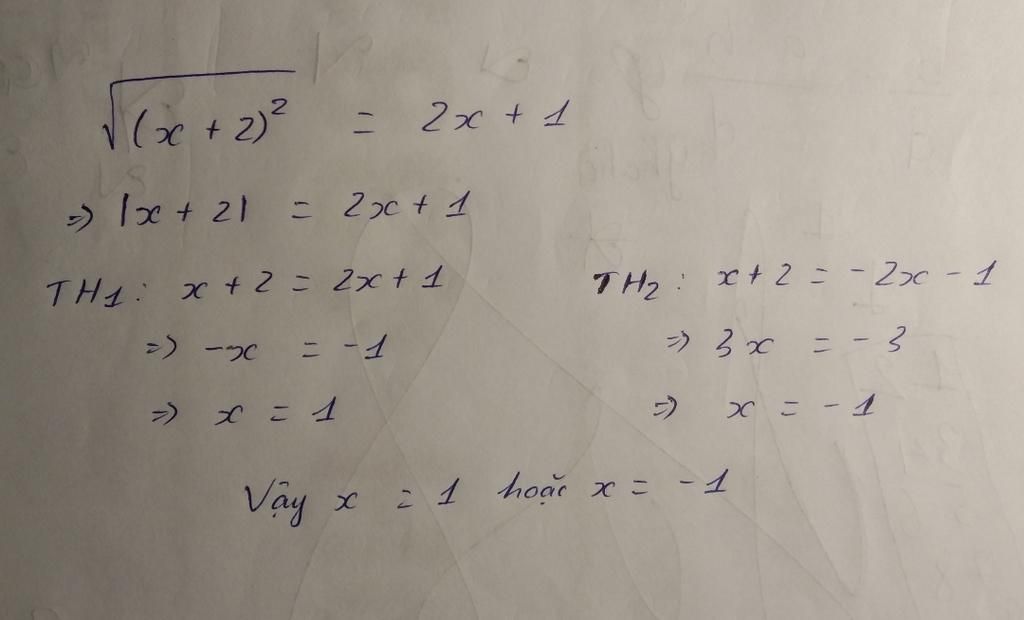 √(x + 2)² = 2x + 1
=> |x + 2| = 2x + 1
TH1: x + 2 = 2x + 1
=> -x = -1
=> x = 1
TH2: x + 2 = - 2x - 1
=> 3x = - 3
=> x = - 1
Vậy x = 1 hoặc x = - 1